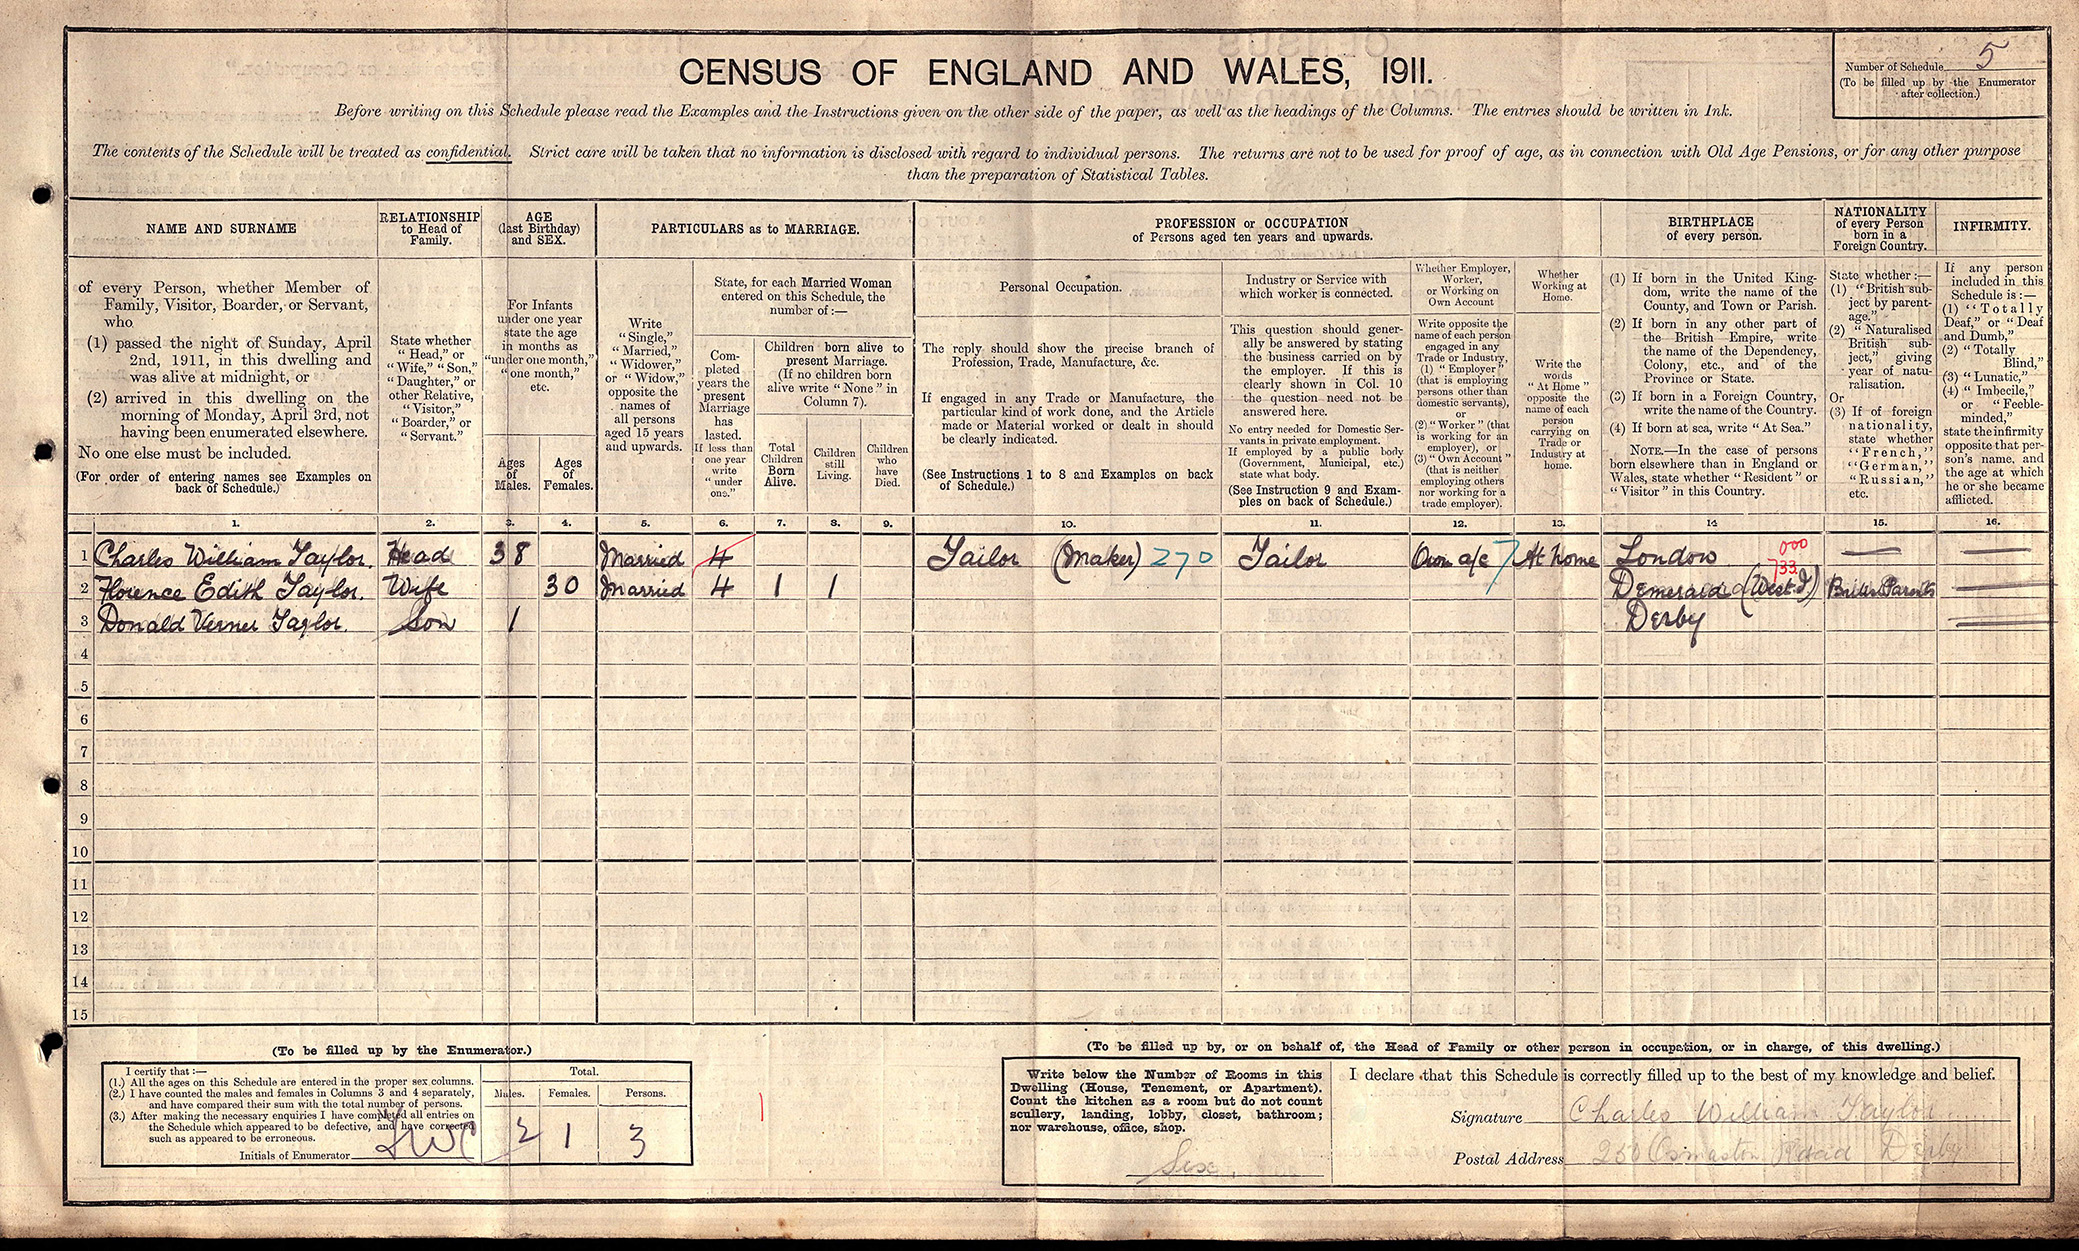 CENSUS OF ENGLAND AND WALES, 1911.
Number of Schedule 5
(To be filled up by the Enumerator
after collection.)
Before writing on this Schedule please read the Examples and the Instructions given on the other side of the paper, as well as the headings of the Columns. The entries should be written in Ink.
The contents of the Schedule will be treated as confidential. Strict care will be taken that no information is disclosed with regard to individual persons. The returns are not to be used for proof of age, as in connection with Old Age Pensions, or for any other purpose
than the preparation of Statistical Tables.
NAME AND SURNAME
of every Person, whether Member of
Family, Visitor, Boarder, or Servant,
who
(1) passed the night of Sunday, April
2nd, 1911, in this dwelling and
was alive at midnight, or
(2) arrived in this dwelling on the
morning of Monday, April 3rd, not
having been enumerated elsewhere.
No one else must be included.
(For order of entering names see Examples on
back of Schedule.)
RELATIONSHIP
to Head of
Family.
State whether
"Head," or
"Wife," "Son,"
"Daughter," or
other Relative,
"Visitor,"
"Boarder," or
"Servant."
AGE
(last Birthday)
and SEX.
For Infants
under one year
state the age
in months as
"under one month,"
"one month,"
etc.
Ages
of
Males.
Ages
of
Females.
PARTICULARS as to MARRIAGE.
Write
"Single,"
"Married,"
"Widower,"
or "Widow,"
opposite the
names of
all persons
aged 15 years
and upwards.
State, for each Married Woman
entered on this Schedule, the
number of:—
Com-
pleted
years the
present
Marriage
has
lasted.
If less than
one year
write
"under
one."
Children born alive to
present Marriage.
(If no children born
alive write "None" in
Column 7).
Total
Children
Born
Alive.
Children
still
Living.
Children
who
have
Died.
PROFESSION or OCCUPATION
of Persons aged ten years and upwards.
Personal Occupation.
The reply should show the precise branch of
Profession, Trade, Manufacture, &c.
If engaged in any Trade or Manufacture, the
particular kind of work done, and the Article
made or Material worked or dealt in should
be clearly indicated.
(See Instructions 1 to 8 and Examples on back
of Schedule.)
Industry or Service with
which worker is connected.
This question should gener-
ally be answered by stating
the business carried on by
the employer. If this is
clearly shown in Col. 10
the question need not be
answered here.
No entry needed for Domestic Ser-
vants in private employment.
If employed by a public body
(Government, Municipal, etc.)
state what body.
(See Instruction 9 and Exam-
ples on back of Schedule.)
Whether Employer,
Worker,
or Working on
Own Account
Write opposite the
name of each person
engaged in any
Trade or Industry,
(1) "Employer"
(that is employing
persons other than
domestic servants),
or
(2) "Worker" (that
is working for an
employer), or
(3) "Own Account"
(that is neither
employing others
nor working for a
trade employer).
Whether
Working at
Home.
Write the
words
"At Home"
opposite the
name of each
person
carrying on
Trade or
Industry at
home.
BIRTHPLACE
of every person.
(1) If born in the United King-
dom, write the name of the
County, and Town or Parish.
(2) If born in any other part of
the British Empire, write
the name of the Dependency,
Colony, etc., and of the
Province or State.
(3) If born in a Foreign Country,
write the name of the Country.
(4) If born at sea, write "At Sea."
NOTE.—In the case of persons
born elsewhere than in England or
Wales, state whether "Resident" or
"Visitor" in this Country.
NATIONALITY
of every Person
born in a
Foreign Country.
State whether:—
(1) "British sub-
ject by parent-
age."
(2) "Naturalised
British sub-
ject," giving
year of natu-
ralisation.
Or
(3) If of foreign
nationality,
state whether
"French,"
"German,"
"Russian,"
etc.
INFIRMITY.
If any person
included in this
Schedule is:—
(1) "Totally
Deaf," or "Deaf
and Dumb,"
(2) "Totally
Blind,"
(3) "Lunatic,"
(4) "Imbecile,"
or "Feeble-
minded,"
state the infirmity
opposite that per-
son's name, and
the age at which
he or she became
afflicted.
1. 2. 3. 4. 5. 6. 7. 8. 9. 10. 11. 12. 13. 14 15. 16.
1 Charles William Taylor. Head 38 Married 4 Tailor (Maker) 270 Tailor Own a/c 7 At home London 000 —
2 Florence Edith Taylor. Wife 30 Married 4 1 1 Demerara (West I) 733 British Parents —
3 Donald Verner Taylor. Son 1 Derby —
4
5
6
7
8
9
10
11
12
13
14
15
(To be filled up by the Enumerator.)
I certify that:—
(1.) All the ages on this Schedule are entered in the proper sex columns.
(2.) I have counted the males and females in Columns 3 and 4 separately,
and have compared their sum with the total number of persons.
(3.) After making the necessary enquiries I have completed all entries on
the Schedule which appeared to be defective, and have corrected
such as appeared to be erroneous.
Initials of Enumerator
Total.
Males. Females. Persons.
2 1 3
(To be filled up by, or on behalf of, the Head of Family or other person in occupation, or in charge, of this dwelling.)
Write below the Number of Rooms in this
Dwelling (House, Tenement, or Apartment).
Count the kitchen as a room but do not count
scullery, landing, lobby, closet, bathroom;
nor warehouse, office, shop.
Six.
I declare that this Schedule is correctly filled up to the best of my knowledge and belief.
Signature Charles William Taylor
Postal Address 250 Osmaston Road Derby